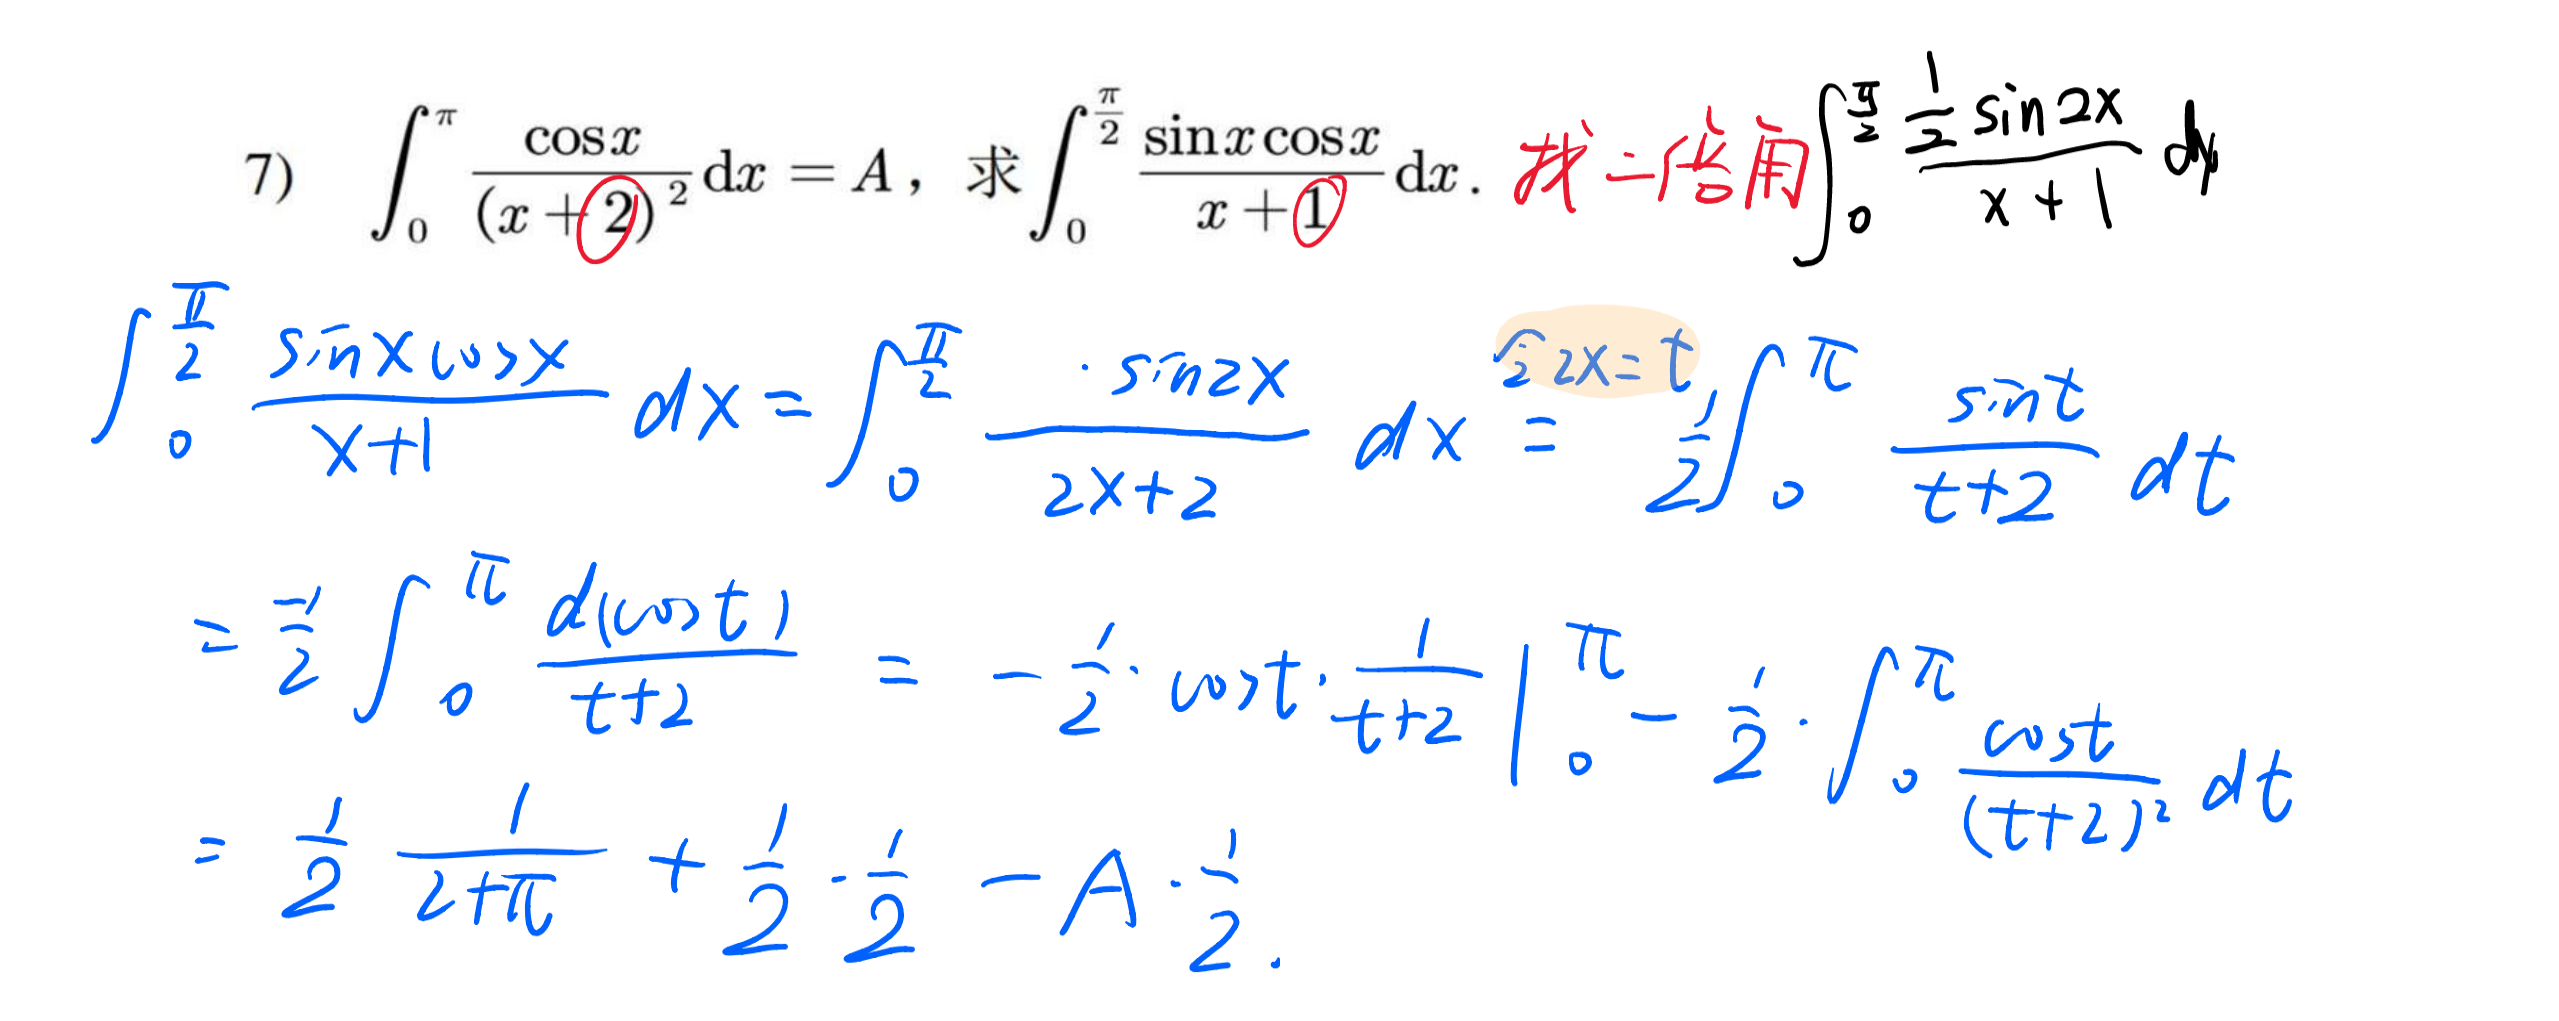 7) ∫₀^π cosx/(x+2)² dx = A，求 ∫₀^{π/2} sinx cosx/(x+1) dx. 找二倍角 ∫₀^{π/2} (1/2 sin2x)/(x+1) dx
∫₀^{π/2} sinxcosx/(x+1) dx = ∫₀^{π/2} sin2x/(2x+2) dx 令2x=t = 1/2 ∫₀^π sint/(t+2) dt
= -1/2 ∫₀^π d(cost)/(t+2) = -1/2 · cost · 1/(t+2) |₀^π - 1/2 · ∫₀^π cost/(t+2)² dt
= 1/2 1/(2+π) + 1/2 · 1/2 - A · 1/2 .